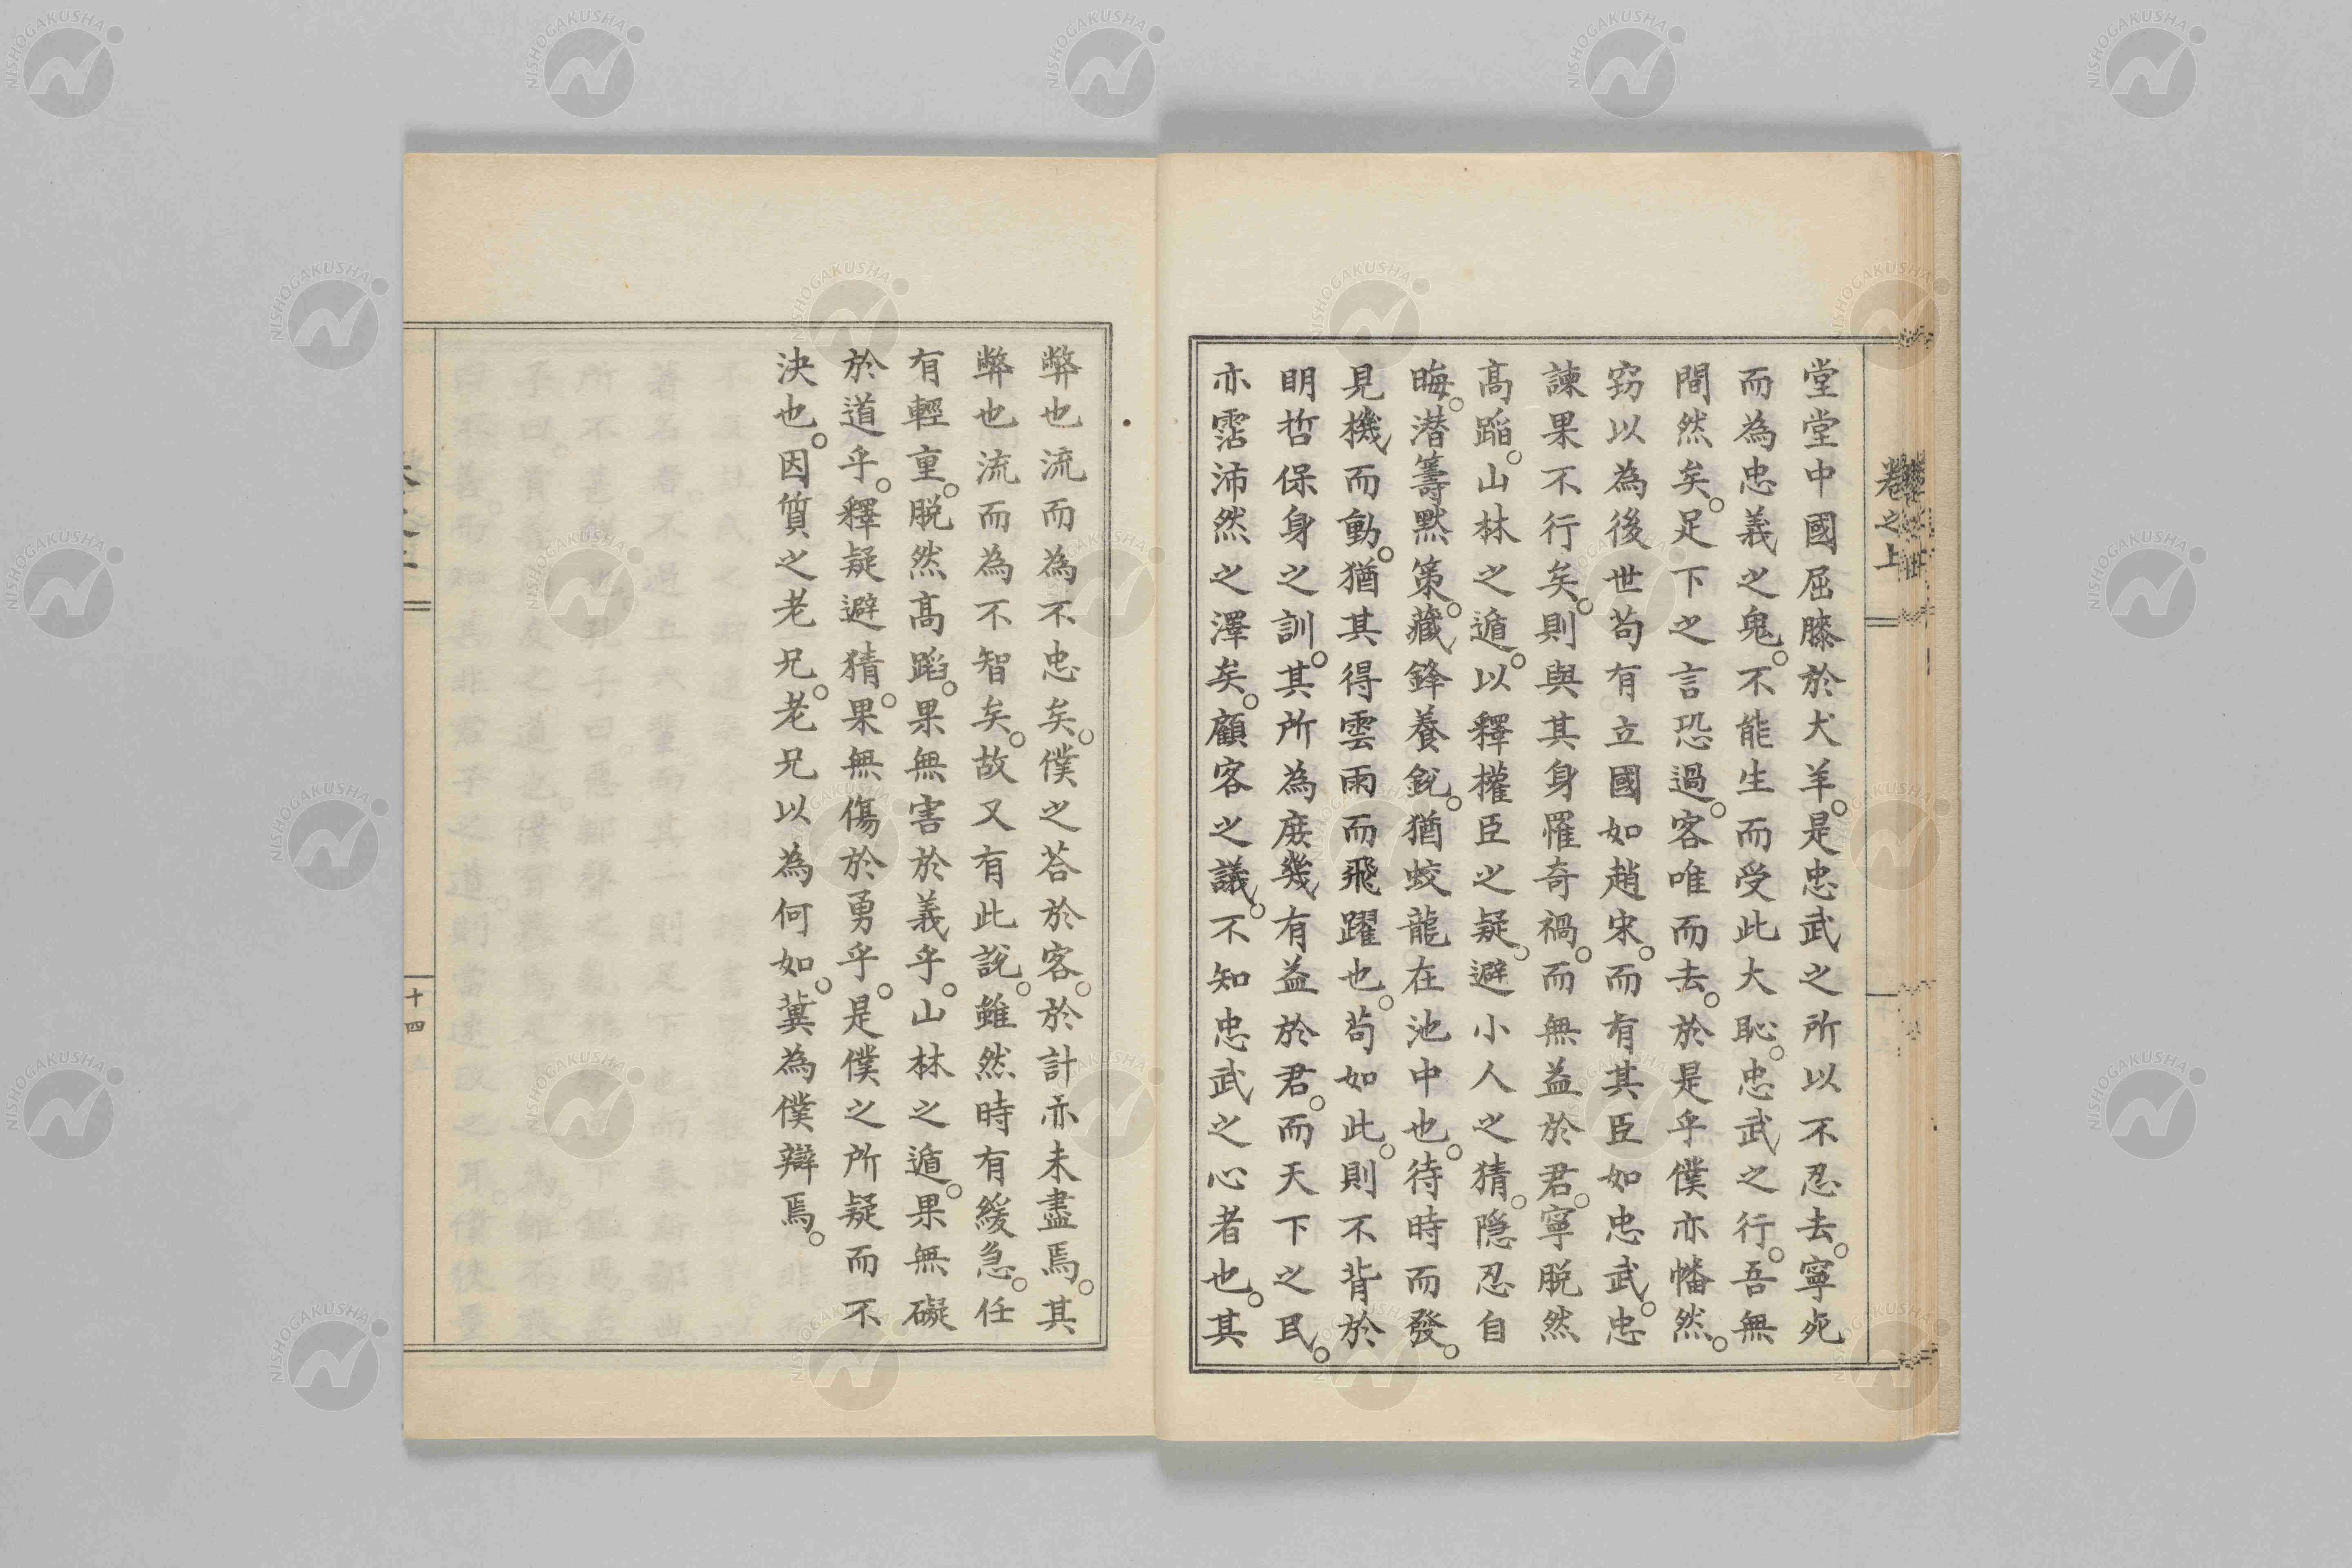 卷之上
堂堂中國屈膝於犬羊。是忠武之所以不忍去。寧死
而為忠義之鬼。不能生而受此大恥。忠武之行。吾無
間然矣。足下之言恐過。客唯而去。於是乎僕亦幡然。
窃以為後世苟有立國如趙宋。而有其臣如忠武。忠
諫果不行矣。則與其身罹奇禍。而無益於君。寧脱然
高蹈。山林之遁。以釋權臣之疑。避小人之猜。隠忍自
晦。潜籌黙策。藏鋒養鋭。猶蛟龍在池中也。待時而發。
見機而動。猶其得雲雨而飛躍也。苟如此。則不背於
明哲保身之訓。其所為庶幾有益於君。而天下之民。
亦霑沛然之澤矣。顧客之議。不知忠武之心者也。其
弊也流而為不忠矣。僕之荅於客。於計亦未盡焉。其
弊也流而為不智矣。故又有此説。雖然時有緩急。任
有輕重。脱然高蹈。果無害於義乎。山林之遁。果無礙
於道乎。釋疑避猜。果無傷於勇乎。是僕之所疑而不
決也。因質之老兄。老兄以為何如。冀為僕辯焉。
十四
NISHOGAKUSHA